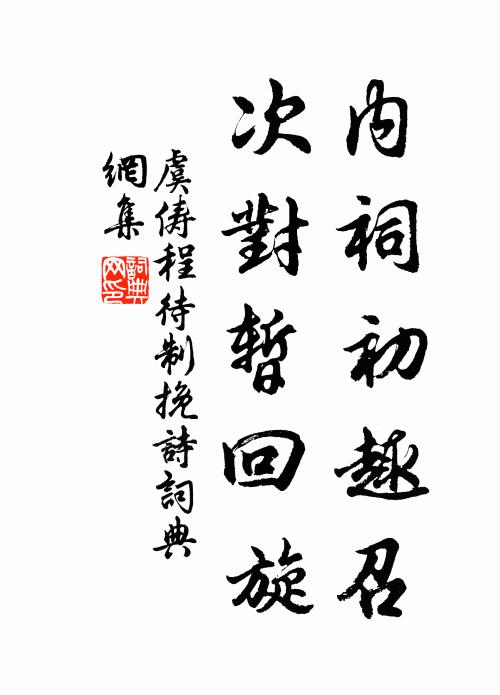 內祠初趣召
次對暫回旋
虞儔程待制挽詩詞典
網集
詞典
網印